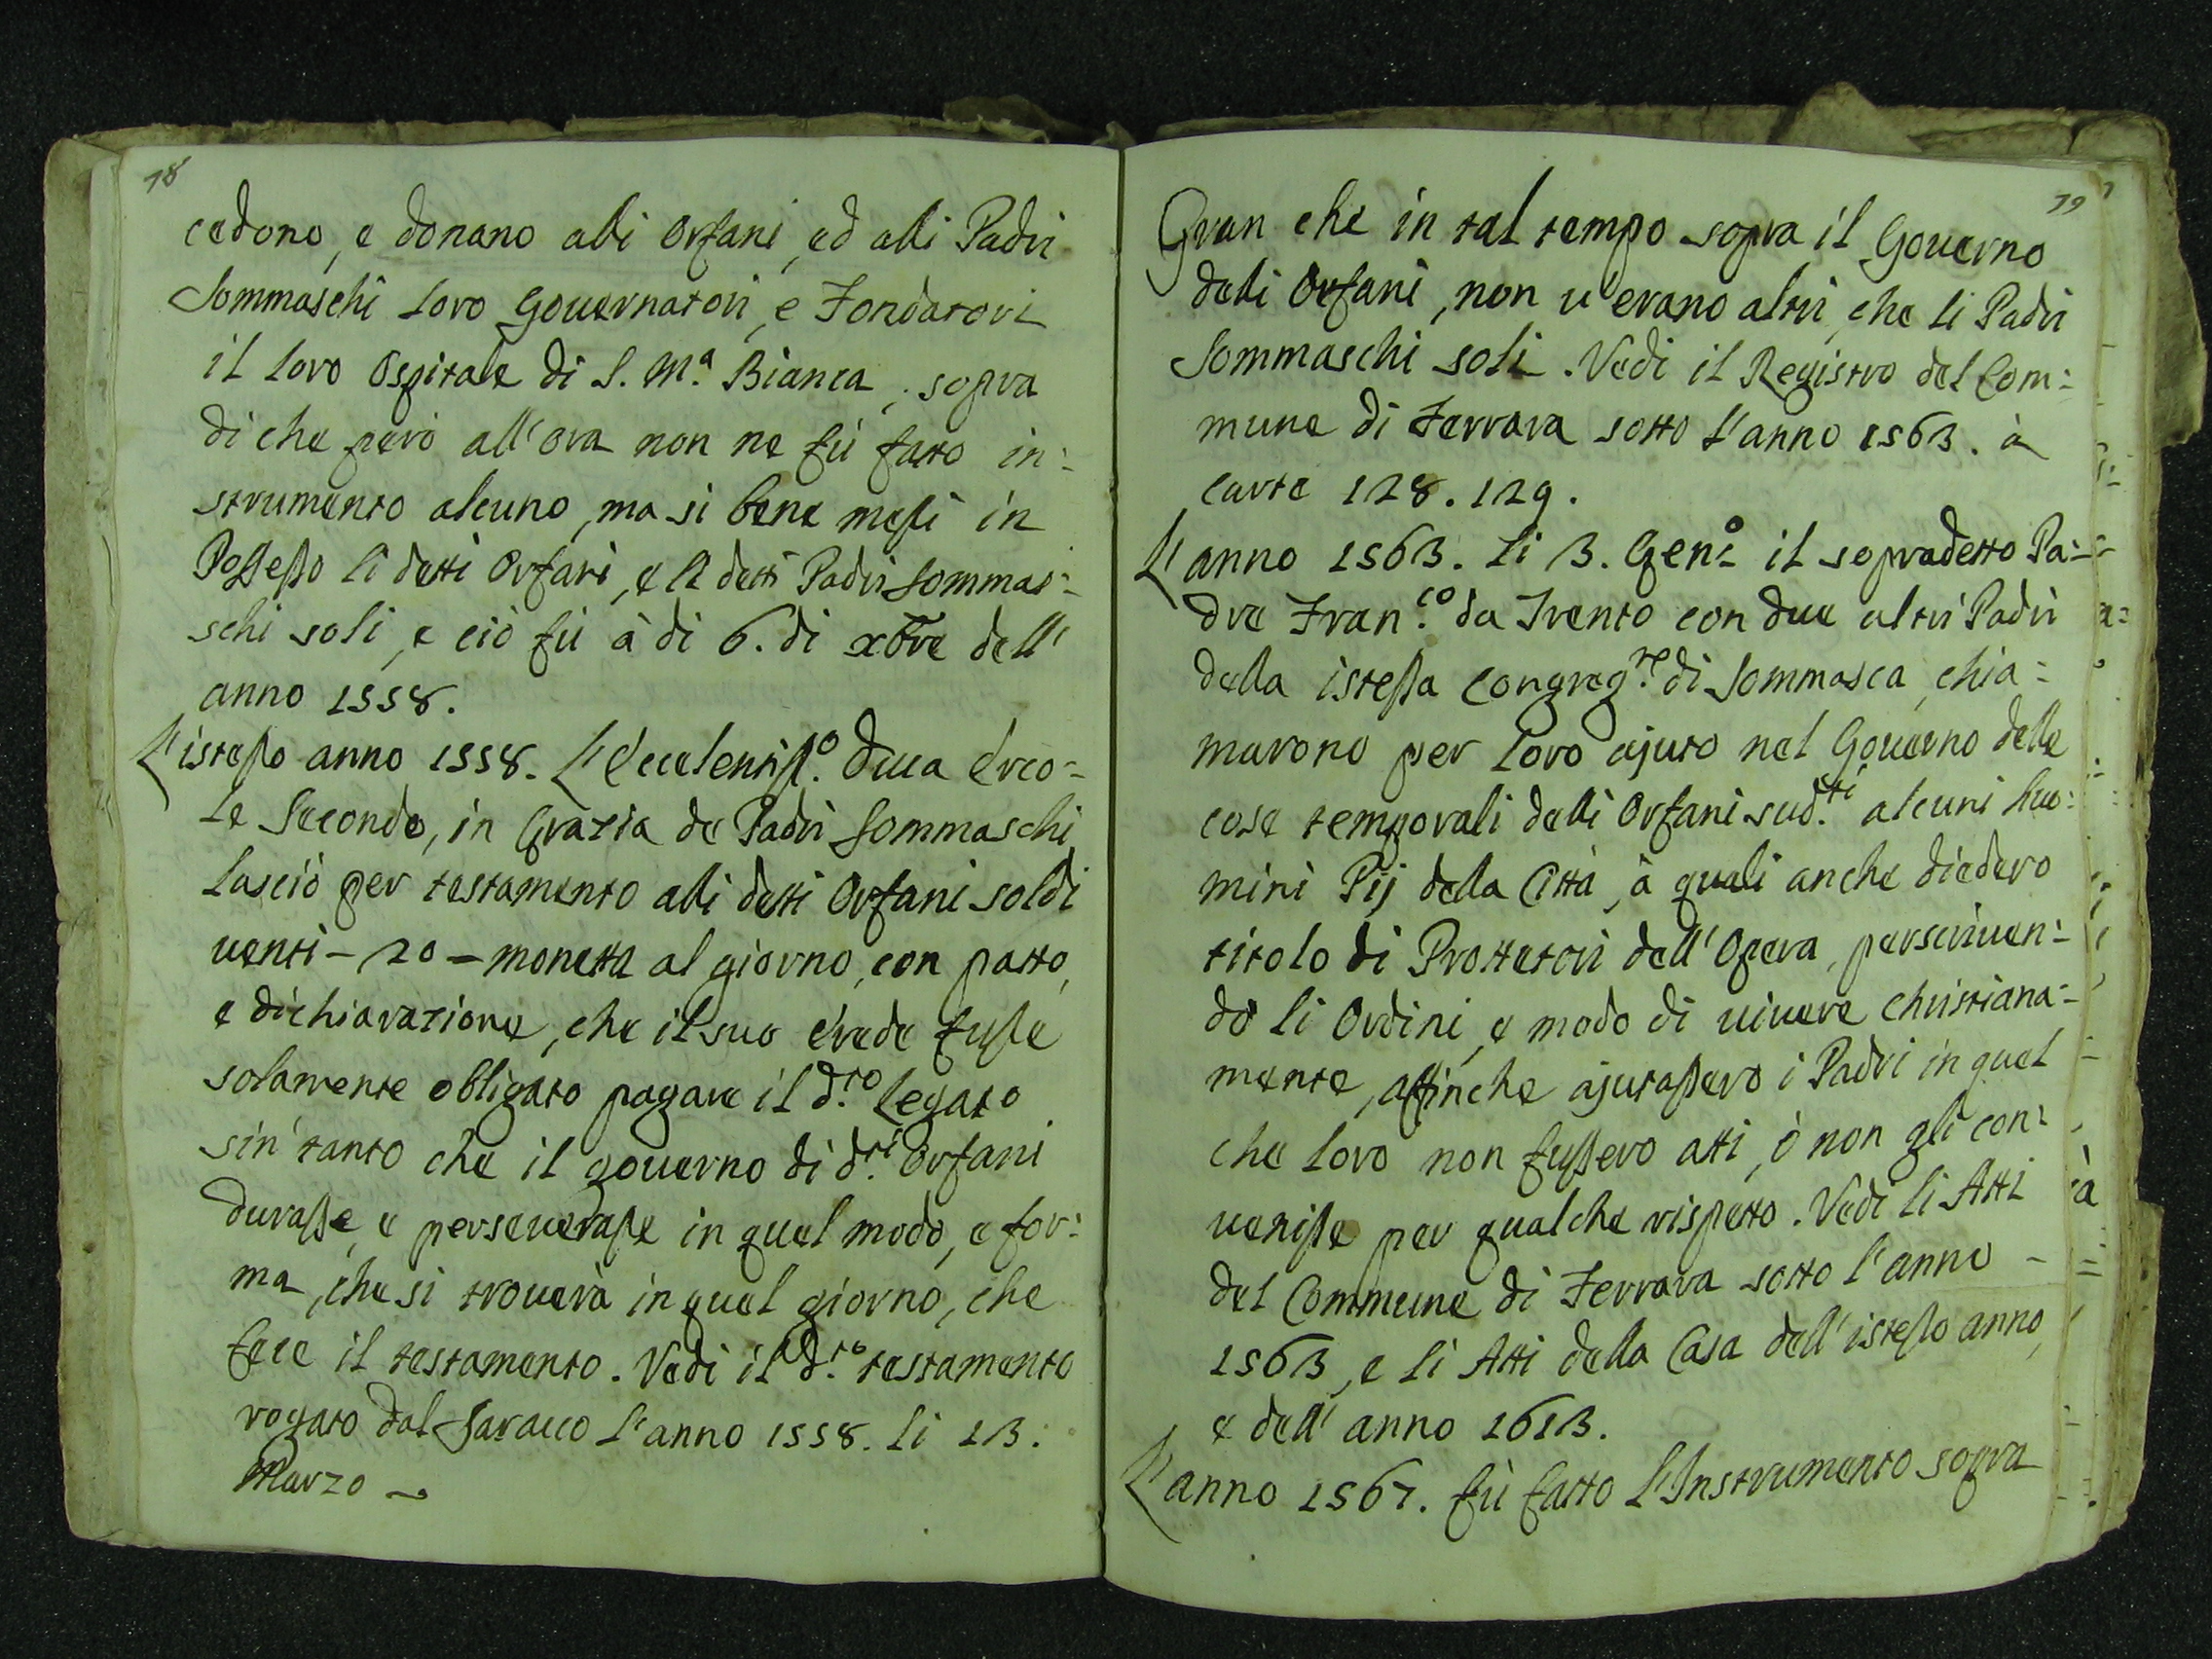 78
cedono, e donano alli Orfani, ed alli Padri
Sommaschi loro Gouernatori, e Fondatori
il loro Ospitale di S. M.ª Bianca, sopra
di che però all'ora non ne fù fatto in:
strumento alcuno, ma si bene messi in
Possesso li detti Orfani, e li detti Padri Sommas:
schi soli, e ciò fù à di 6. di xbre dell'
anno 1558.
L'istesso anno 1558. L'Eccelentiss.º Duca Erco:
le Secondo, in Grazia de Padri Sommaschi
lasciò per testamento alli detti Orfani soldi
uenti - 20 - monetta al giorno, con patto,
e dichiarazione, che il suo erede fusse
solamente obligato pagare il d.to Legato
sin' tanto che il gouerno di d.ti Orfani
durasse, e perseuerasse in quel modo, e for:
ma, che si trouerà in quel giorno, che
fece il testamento. Vedi il d.to testamento
rogato dal Saracco l'anno 1558. li 13.
Marzo
79
Gran che in tal tempo sopra il Gouerno
delli Orfani, non u'erano altri, che li Padri
Sommaschi soli. Vedi il Registro del Com:
mune di Ferrara sotto l'anno 1563. à
carte 128. 129.
L'anno 1563. li 3. Gen.º il sopradetto Pa:
dre Fran.co da Trento con due altri Padri
della istessa Congreg.ne di Sommasca, chia:
marono per loro ajuto nel Gouerno delle
cose temporali delli Orfani sud.ti alcuni huo:
mini Pij della Città, à quali anche diedero
titolo di Prottetori dell'Opera, perscriuen:
do li Ordini, e modo di uiuere christiana:
mente, affinche ajutassero i Padri in quel
che loro non fussero atti, ò non gli con:
uenisse per qualche rispetto. Vedi li Atti
del Commune di Ferrara sotto l'anno -
1563, e li Atti della Casa dell'istesso anno,
e dell'anno 1613.
L'anno 1567. fù fatto l'Instrumento sopra